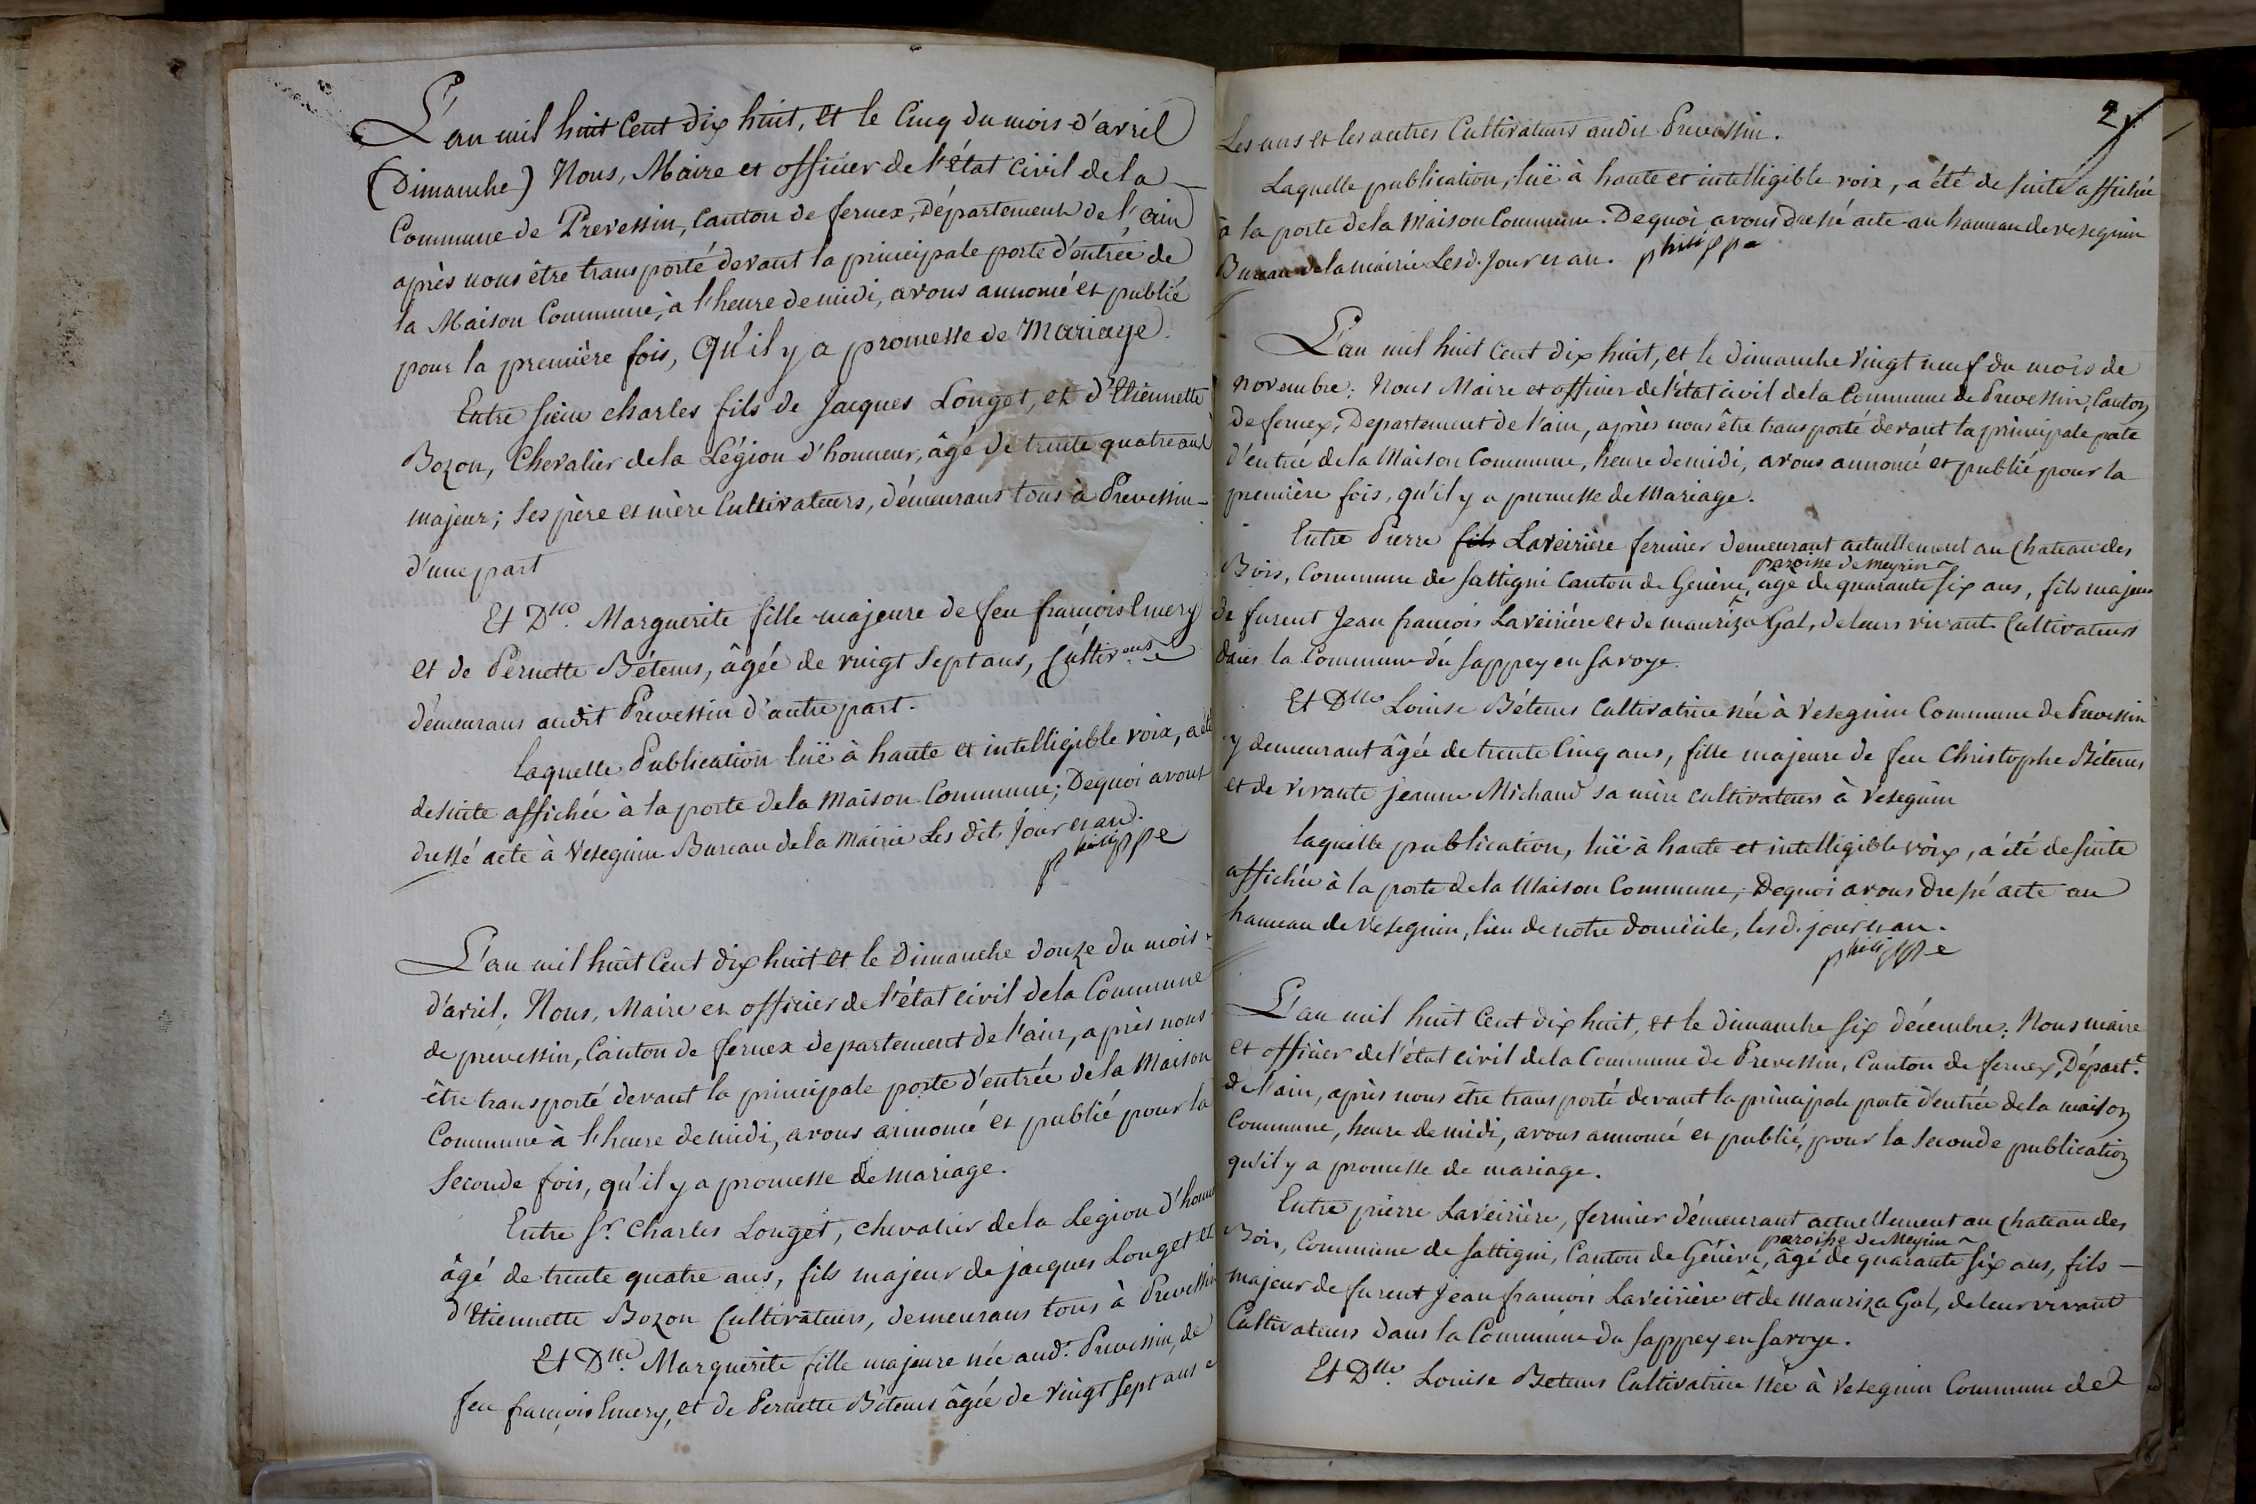 L'an mil huit Cent dix huit, et le Cinq du mois d'avril
(Dimanche) Nous, Maire et officier de l'état Civil de la
Commune de Prevessin, Canton de fernex, Département de l'ain
après nous être transporté devant la principale porte d'entrée de
la Maison Commune, à l'heure de midi, avons annoncé et publié
pour la première fois, Qu'il y a promesse de Mariage.
Entre sieur charles fils de Jacques Longet, et d'Etiennette
Bozon, Chevalier de la Légion d'honneur, âgé de trente quatre ans
majeur; Ses père et mère Cultivateurs, démeurans tous à Prevessin
d'une part
Et Dlle. Marguerite fille majeure de feu françois Emery
et de Pernette Bétems, âgée de vingt Sept ans, Cultiv.eurs
démeurans audit Prevessin d'autre part.
laquelle Publication luë à haute et intelligible voix, a été
de suite affichée à la porte de la Maison Commune; Dequoi avons
dressé acte à Vesegnin Bureau de la Mairie Les dit jour et an.
philippe
L'an mil huit Cent dix huit et le Dimanche douze du mois
d'avril, Nous, Maire et officier de l'état Civil de la Commune
de prevessin, Canton de fernex departement de l'ain, après nous
être transporté devant la principale porte d'entrée de la Maison
Commune à l'heure de midi, avons annoncé et publié pour la
Seconde fois, qu'il y a promesse de Mariage.
Entre Sr. Charles Longet, chevalier de la Legion d'honn
âgé de trente quatre ans, fils majeur de jacques Longet et
d'Etiennette Bozon Cultivateurs, demeurans tous à Prevessin
Et Dlle. Marguerite fille majeure née aud. Prevessin, de
feu françois Emery, et de Pernette Bétems âgée de vingt Sept ans
2
Les uns et les autres Cultivateurs audit Prevessin.
Laquelle publication, luë à haute et intelligible voix, a été de suite affichée
à la porte de la Maison Commune. Dequoi avons dressé acte au hameau de vesegnin
Bureau de la mairie Lesd. Jour et an. philippe
L'an mil huit Cent dix huit, et le Dimanche vingt neuf du mois de
novembre; Nous Maire et officier de l'état civil de la Commune de Prevessin, Canton
de fernex, Departement de l'ain, après nous être transporté devant la principale porte
d'entrée de la Maison Commune, heure de midi, avons annoncé et publié pour la
première fois, qu'il y a promesse de Mariage.
Entre Pierre fils Laveirière fermier demeurant actuellement au Chateau des
paroisse de Meyrin
Bois, Commune de Sattigni Canton de Genève, âgé de quarante six ans, fils majeur
de furent Jean francois Laveirière et de mauriza Gal, de leurs vivant Cultivateurs
dans la Commune du Sappey en Savoye.
Et Dlle Louise Bétems Cultivatrice née à Vesegnin Commune de Prevessin
y demeurant âgée de trente Cinq ans, fille majeure de feu Christophe Bétems
et de vivante jeanne Michaud sa mère cultivateurs à Vesegnin
laquelle publication, luë à haute et intelligible voix, a été de suite
affichée à la porte de la Maison Commune, Dequoi avons dressé acte au
hameau de Vesegnin, lieu de notre domicile, lesd. jour et an.
philippe
L'an mil huit Cent dix huit, et le Dimanche Six décembre; Nous maire
et officier de l'état civil de la Commune de Prevessin, Canton de fernex, Départ.t
de l'ain, après nous être transporté devant la principale porte d'entrée de la maison
Commune, heure de midi, avons annoncé et publié, pour la Seconde publication
qu'il y a promesse de mariage.
Entre pierre Laveirière, fermier démeurant actuellement au Chateau des
paroisse de Meyrin
Bois, Commune de Sattigni, Canton de Génève, âgé de quarante Six ans, fils
majeur de furent Jean francois Laveirière et de Mauriza Gal, de leur vivant
Cultivateurs dans la Commune du Sappey en Savoye.
Et Dlle. Louise Betems Cultivatrice Née à Vesegnin Commune de